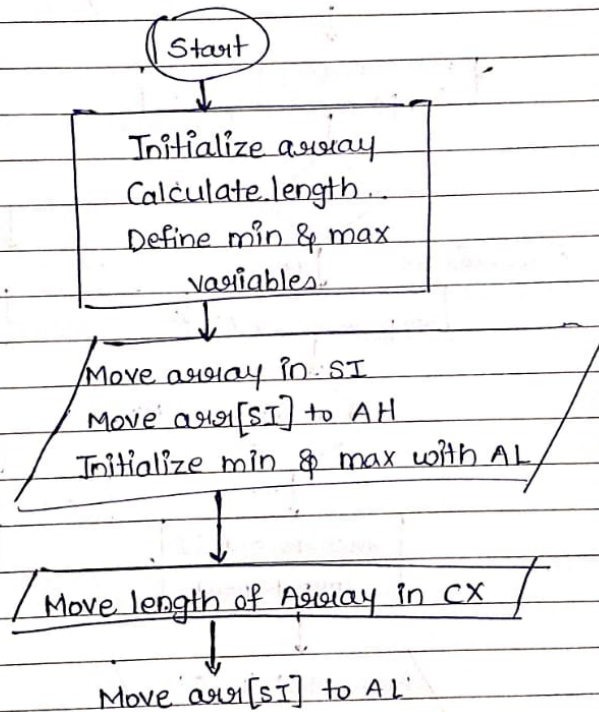 Start
Initialize array
Calculate length.
Define min & max
variables.
Move array in SI
Move arr[SI] to AH
Initialize min & max with AL
Move length of Array in CX
Move arr[SI] to AL